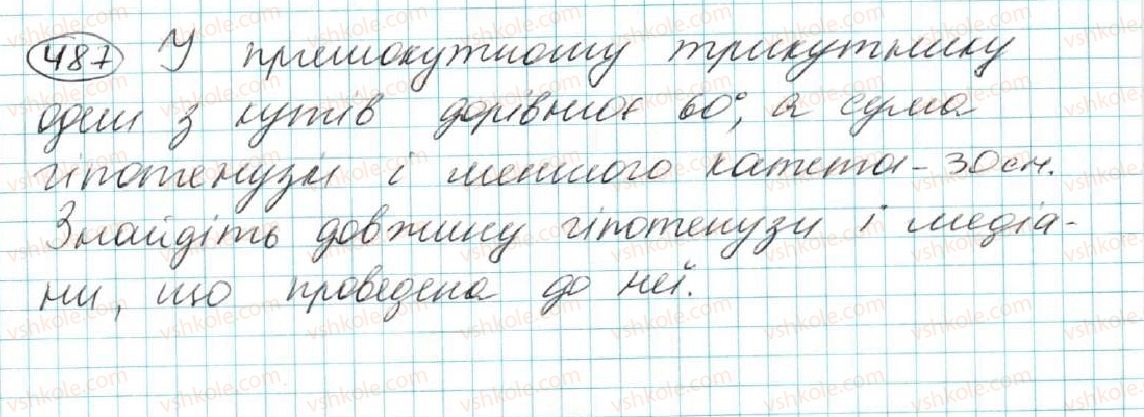 487 У прямокутному трикутнику
один з кутів дорівнює 60°, а сума
гіпотенузи і меншого катета - 30 см.
Знайдіть довжину гіпотенузи і медіа-
ни, що проведена до неї.
vshkole.com